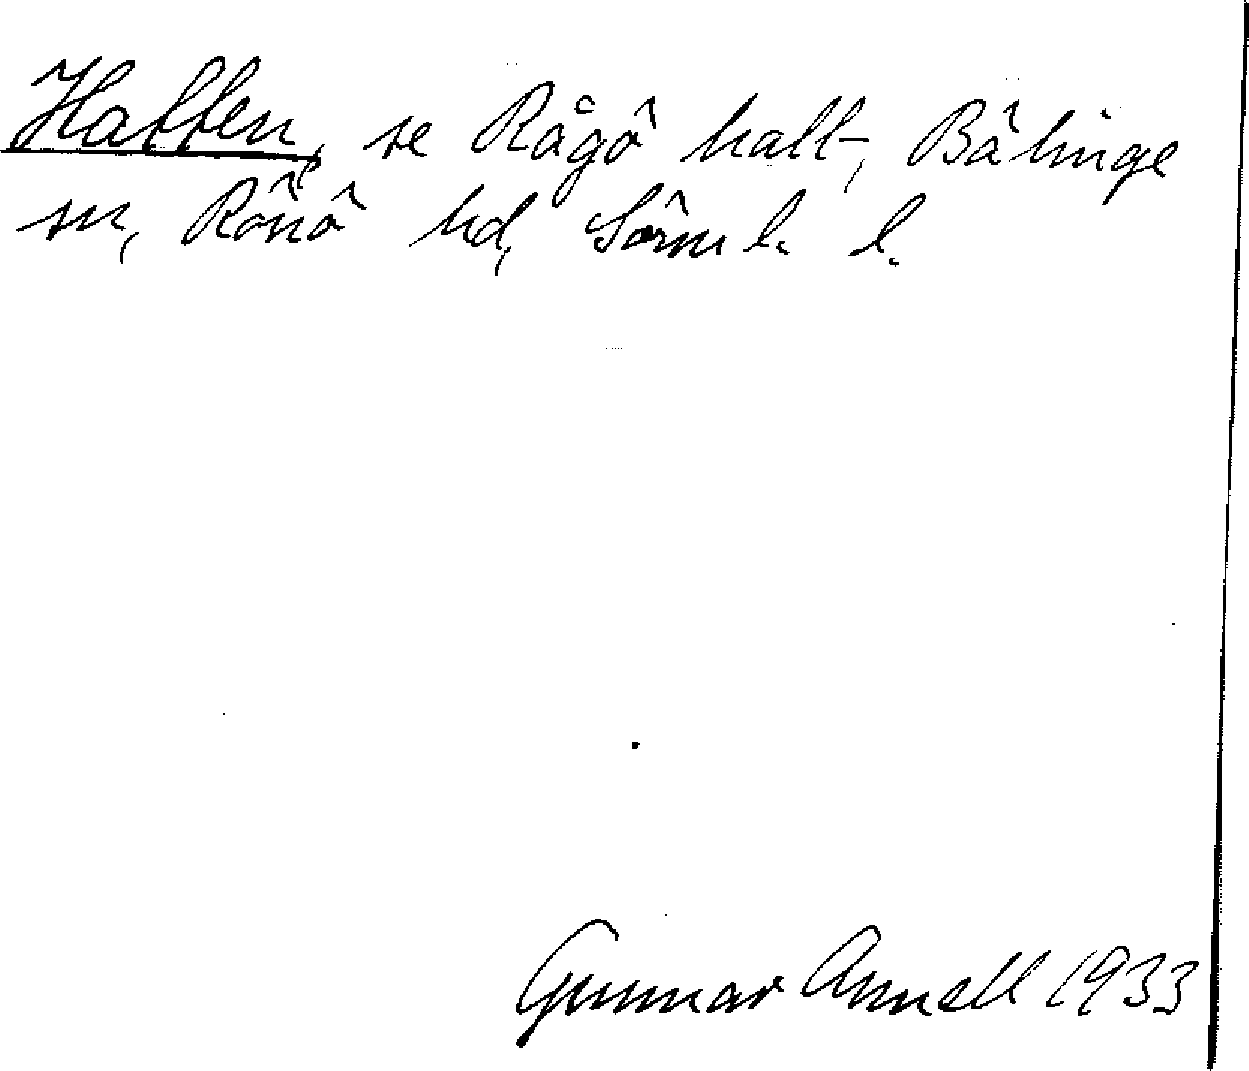 Hatten, se Rågö hatt, Bälinge
sn, Rönö hd, Sörml. l.
Gunnar Annell 1933